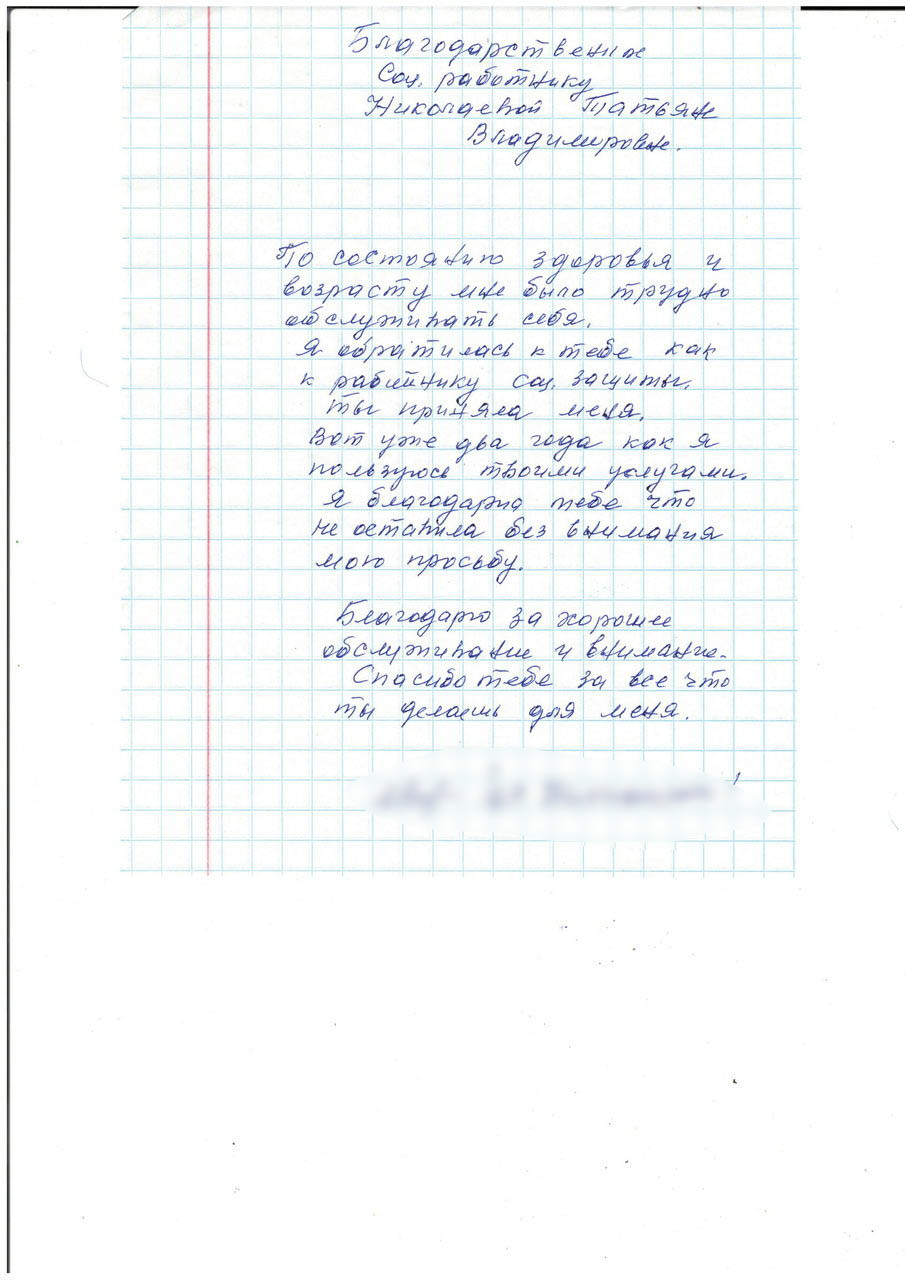 Благодарственное
Соц. работнику
Николаевой Татьяне
Владимировне.
По состоянию здоровья и
возрасту мне было трудно
обслуживать себя.
Я обратилась к тебе как
к работнику соц. защиты,
ты приняла меня.
Вот уже два года как я
пользуюсь твоими услугами.
Я благодарна тебе что
не оставила без внимания
мою просьбу.
Благодарю за хорошее
обслуживание и внимание.
Спасибо тебе за все что
ты делаешь для меня.